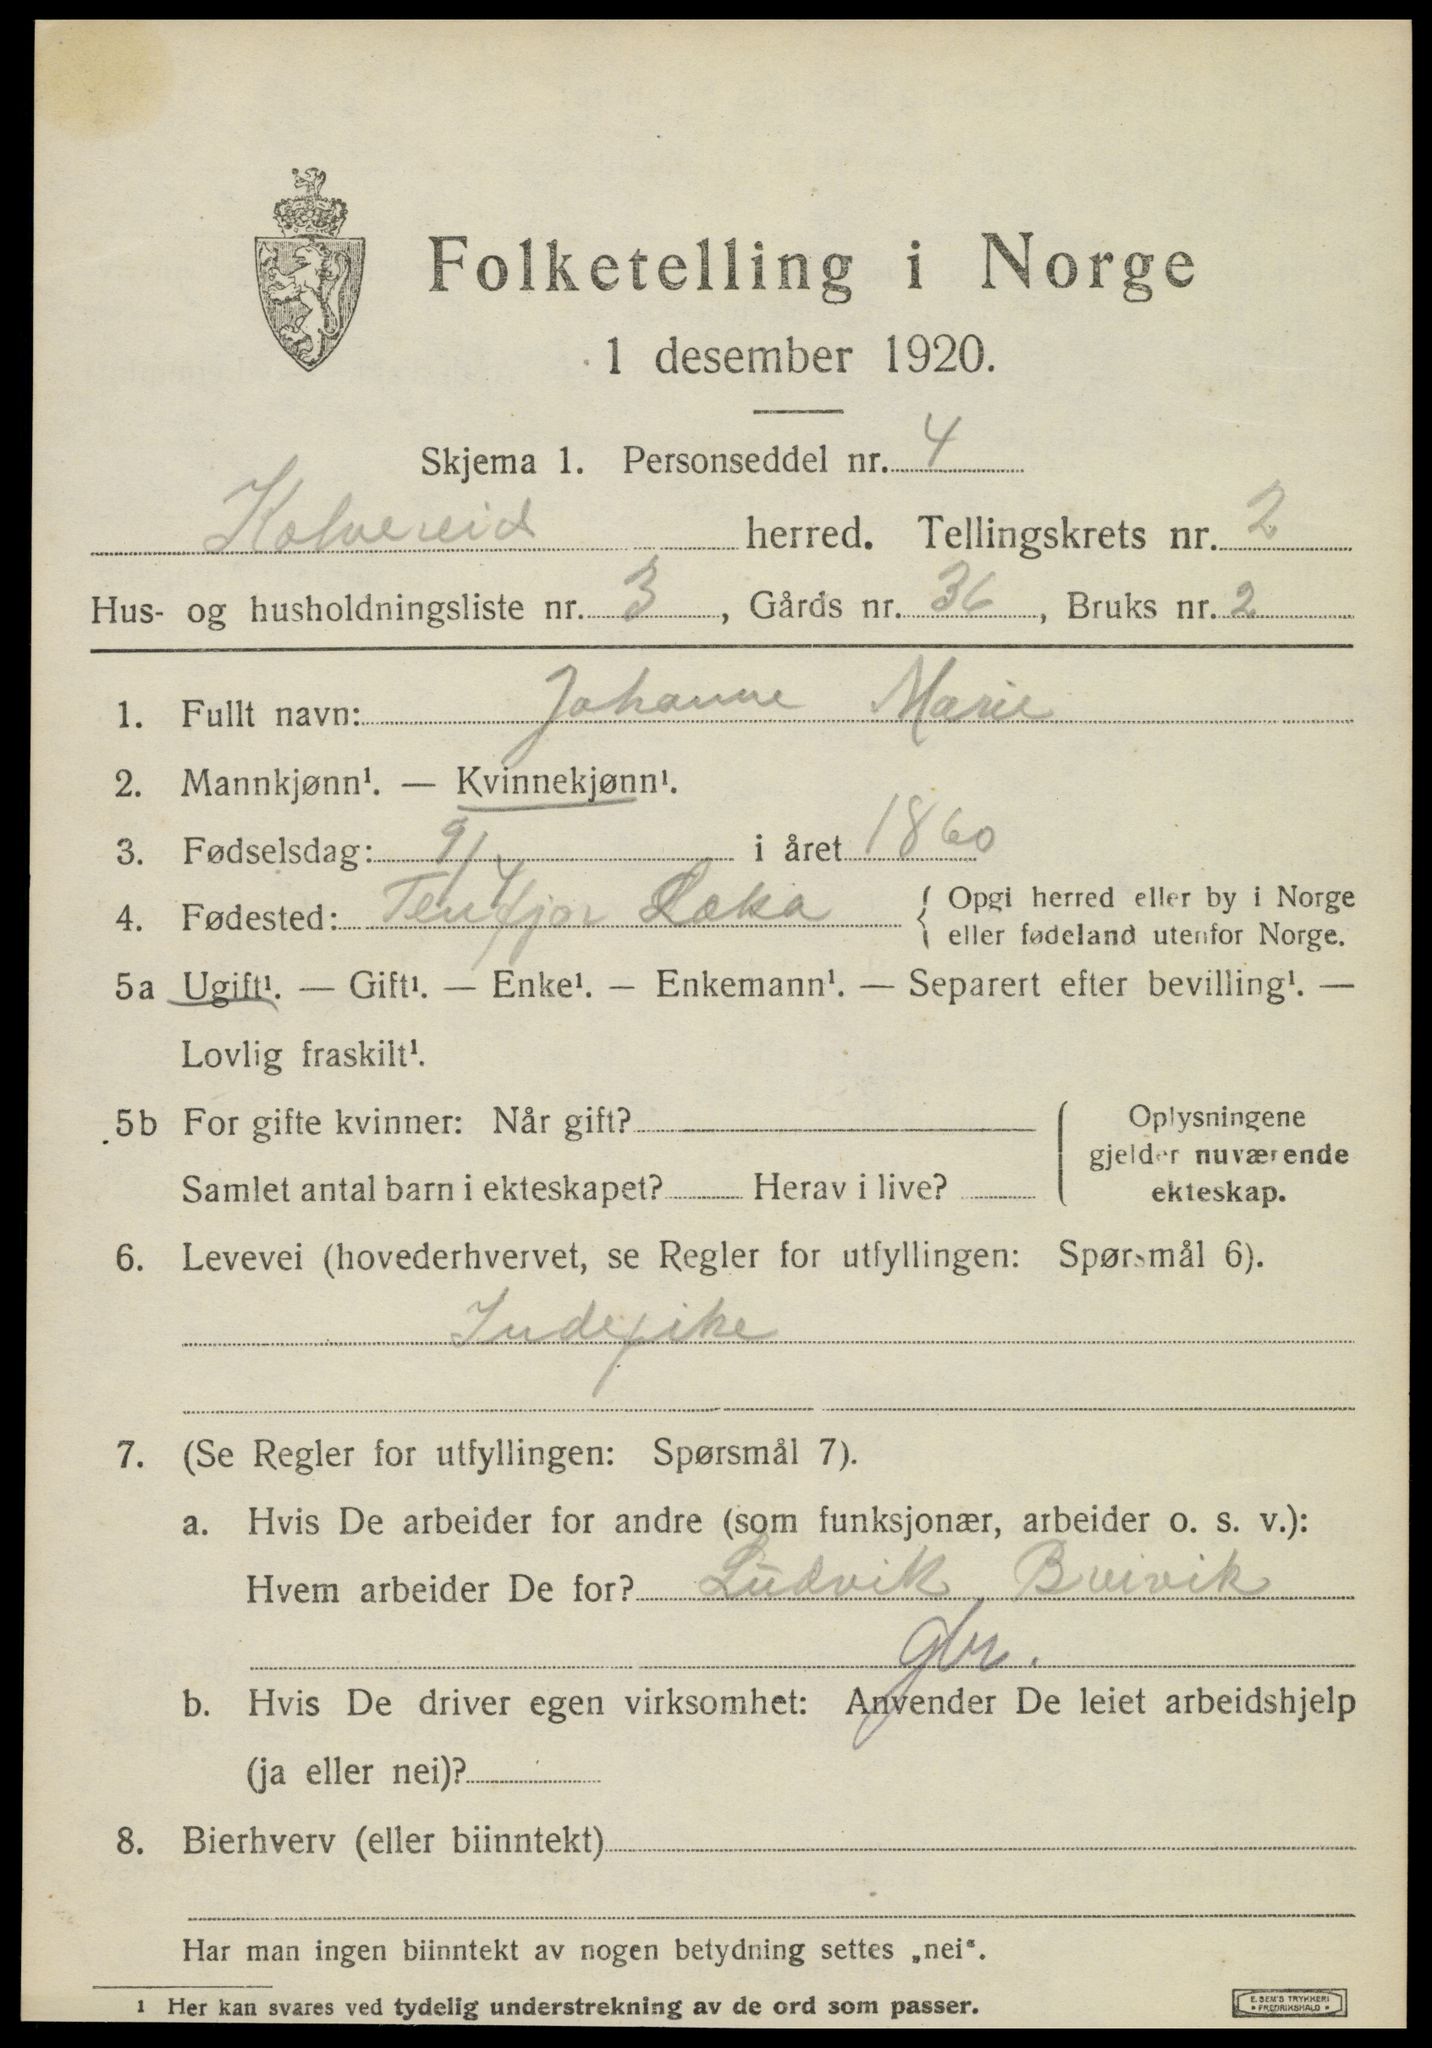 Folketelling i Norge
1 desember 1920.
Skjema 1. Personseddel nr. 4
Kolvereid herred. Tellingskrets nr. 2
Hus- og husholdningsliste nr. 3, Gårds nr. 36, Bruks nr. 2
1. Fullt navn: Johanne Marie
2. Mannkjønn¹. — Kvinnekjønn¹.
3. Fødselsdag: 9/4 i året 1860
4. Fødested: Leka { Opgi herred eller by i Norge
eller fødeland utenfor Norge.
5a Ugift¹. — Gift¹. — Enke¹. — Enkemann¹. — Separert efter bevilling¹. —
Lovlig fraskilt¹.
5b For gifte kvinner: Når gift? Oplysningene
gjelder nuværende
Samlet antal barn i ekteskapet? Herav i live? ekteskap.
6. Levevei (hovederhvervet, se Regler for utfyllingen: Spørsmål 6).
Indepike
7. (Se Regler for utfyllingen: Spørsmål 7).
a. Hvis De arbeider for andre (som funksjonær, arbeider o. s. v.):
Hvem arbeider De for? Ludvik
gbr.
b. Hvis De driver egen virksomhet: Anvender De leiet arbeidshjelp
(ja eller nei)?
8. Bierhverv (eller biinntekt)
Har man ingen biinntekt av nogen betydning settes „nei“.
1 Her kan svares ved tydelig understrekning av de ord som passer.
E. SEM'S TRYKKERI
• FREDRIKSHALD •